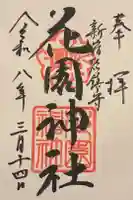 奉拝
新宿総鎮守
花園神社
令和八年三月十四日